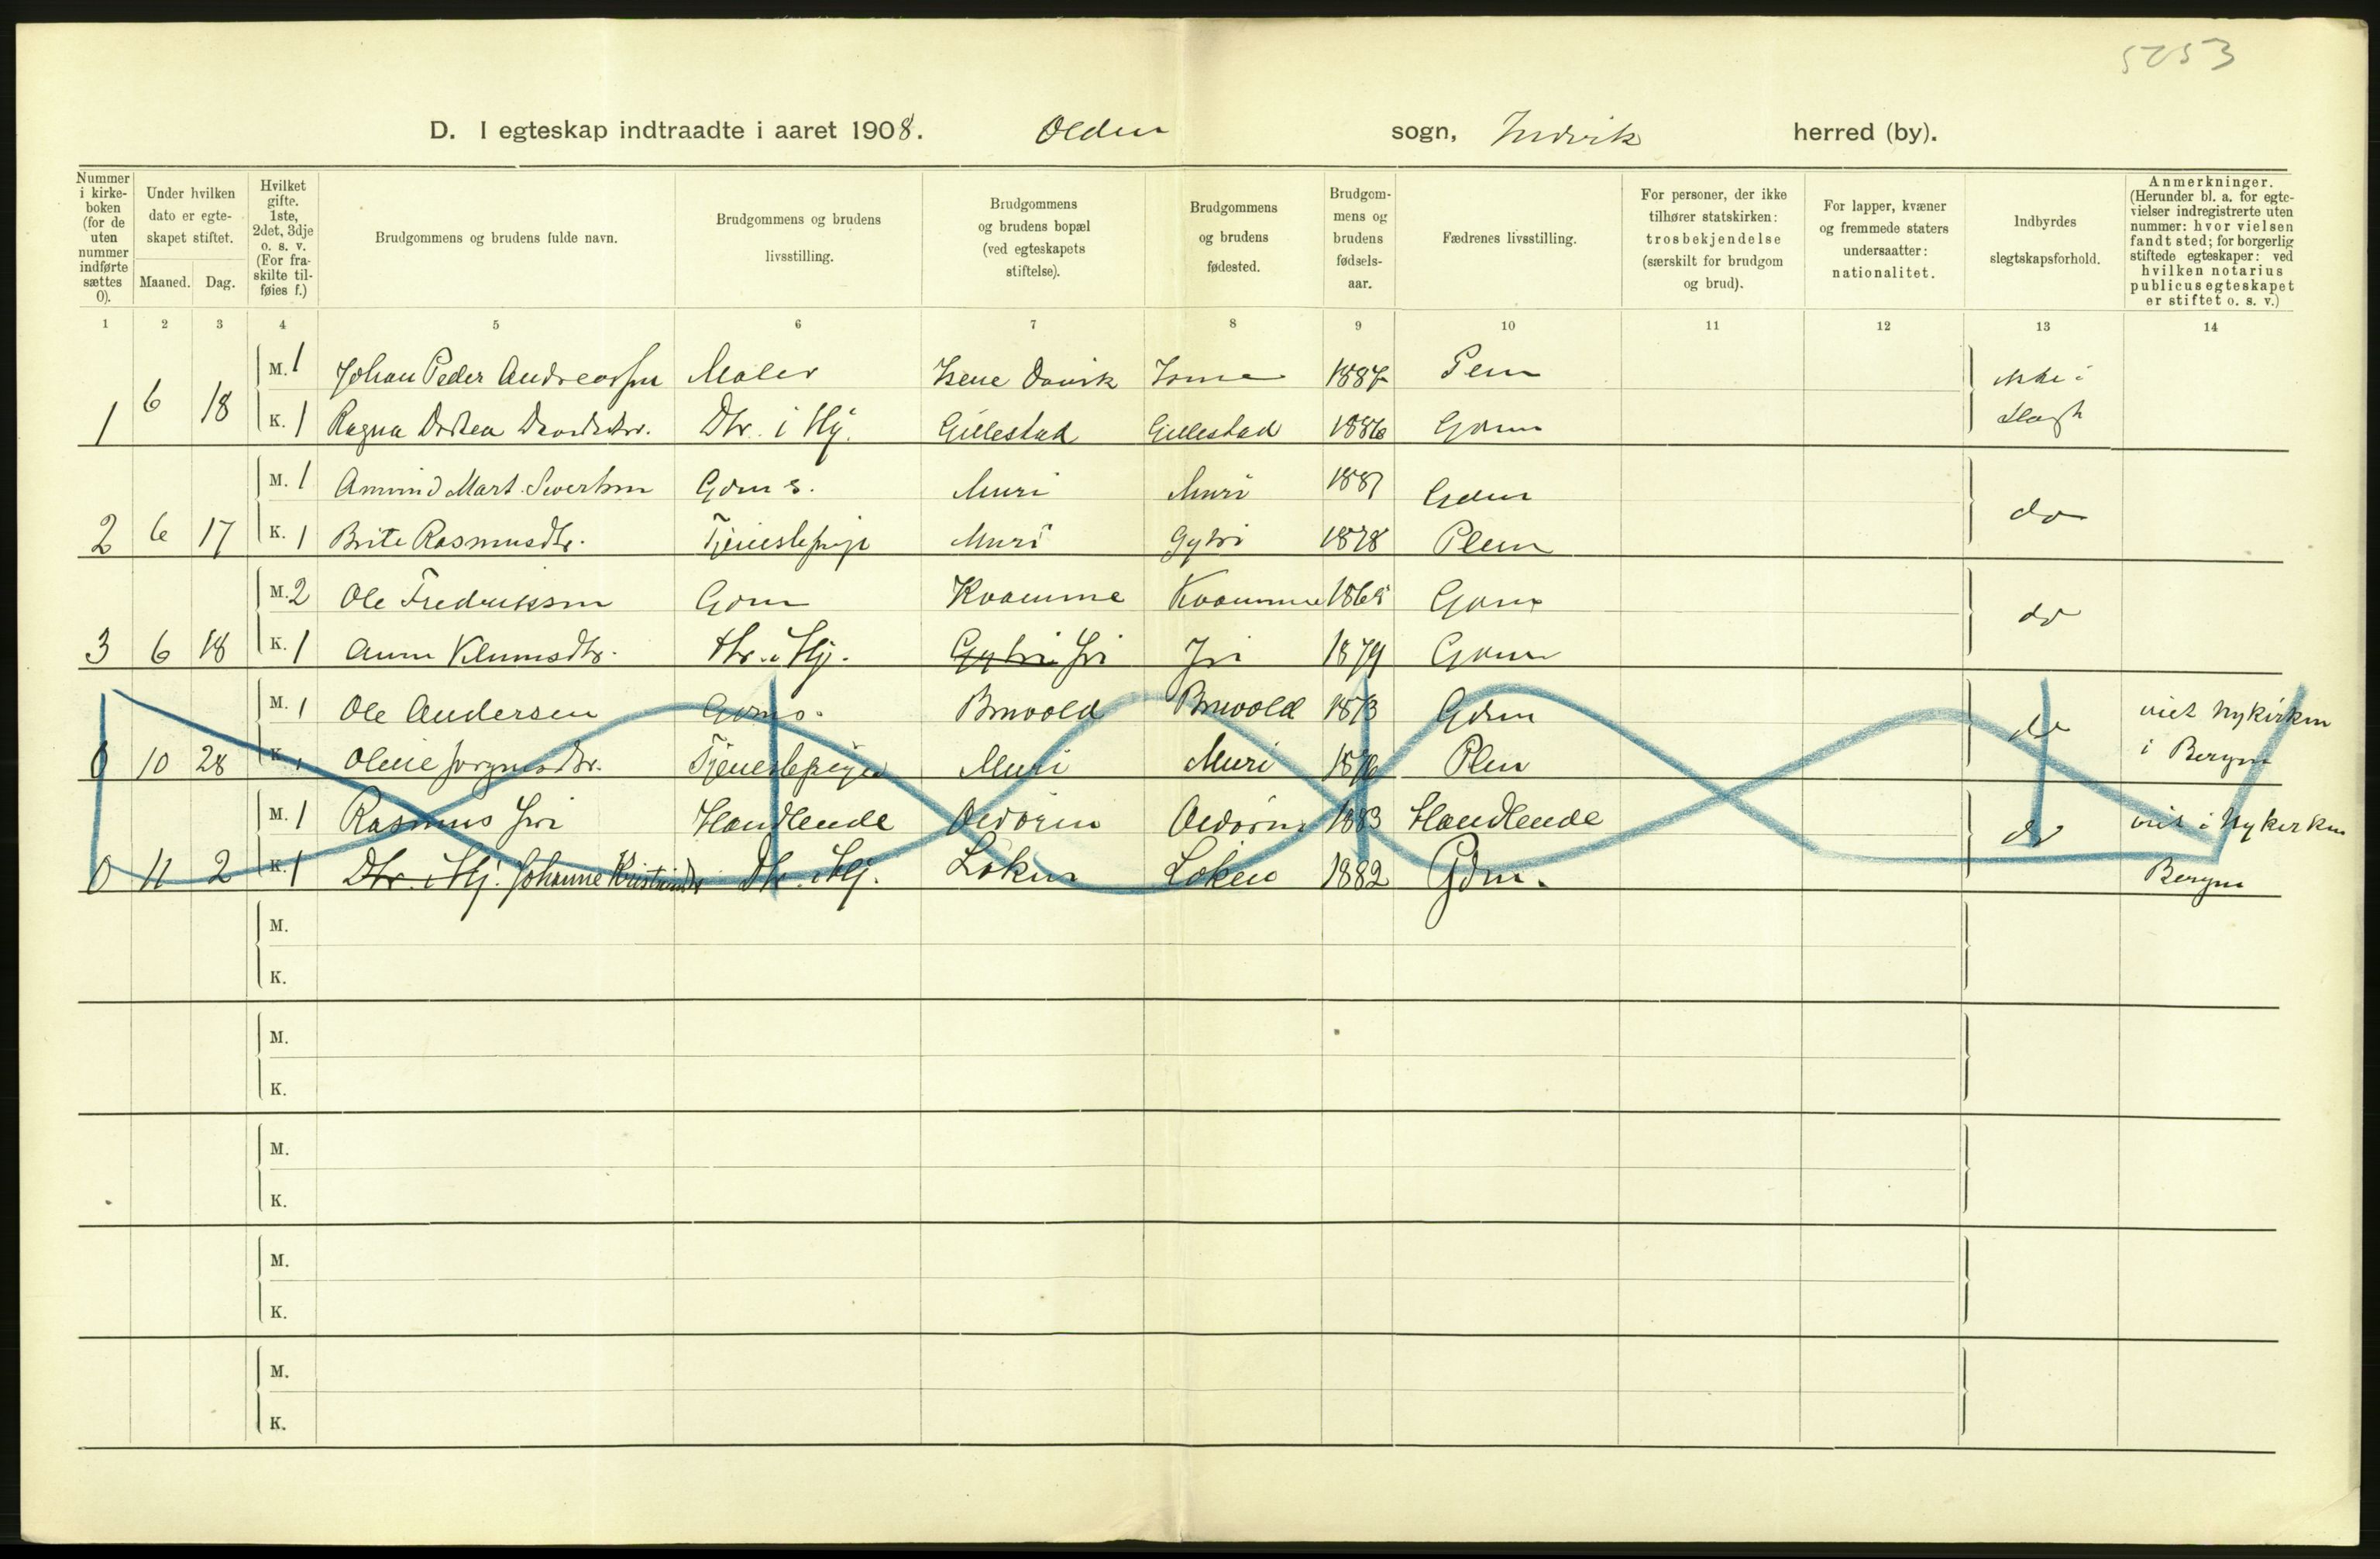 5053
D. I egteskap indtraadte i aaret 1908. Olden sogn, Indvik herred (by).
Nummer i kirke-boken (for de uten nummer indførte sættes 0).
Under hvilken dato er egte-skapet stiftet.
Maaned. Dag.
Hvilket gifte. 1ste, 2det, 3dje o. s. v. (For fra-skilte til-føies f.)
Brudgommens og brudens fulde navn.
Brudgommens og brudens livsstilling.
Brudgommens og brudens bopæl (ved egteskapets stiftelse).
Brudgommens og brudens fødested.
Brudgom-mens og brudens fødsels-aar.
Fædrenes livsstilling.
For personer, der ikke tilhører statskirken: trosbekjendelse (særskilt for brudgom og brud).
For lapper, kvæner og fremmede staters undersaatter: nationalitet.
Indbyrdes slegtskapsforhold.
Anmerkninger. (Herunder bl. a. for egte-vielser indregistrerte uten nummer: hvor vielsen fandt sted; for borgerlig stiftede egteskaper: ved hvilken notarius publicus egteskapet er stiftet o. s. v.)
1 2 3 4 5 6 7 8 9 10 11 12 13 14
M. 1 Johan Peder Andreassen Maler Isene Davik 1887 ikke i
1 6 18 K. 1 Ragna Gillestad Gillestad 1886 Gdm Slegt
M. 1 Amund Mart. Sivertsen Gdms. Muri Muri 1881 Gdm
2 6 17 K. 1 Brite Rasmusdtr. Tjenestepige Muri Gytri 1878 Plm do
M. 2 Ole Fredriksen Gdm Kvamme Kvamme Gdm
3 6 18 K. 1 Anne Klumsdtr. dtr. i Hj. Gytri Iri Iri 1879 Gdm do
M. 1 Ole Andersen Gdms. Bruvold Bruvold 1873 Gdm do viet Nykirken
0 10 28 K. Oline Jørgensdtr. Tjenestepige Muri Muri 1876 Plm i Bergen
M. 1 Rasmus Iri Handlende Oldøren Oldøren 1883 Handlende do viet i Nykirken
0 11 2 K. 1 Dtr. i Hj. Johanne Kristensdtr Dtr. i Hj. Løken Løken 1882 Gdm. Bergen
M.
K.
M.
K.
M.
K.
M.
K.
M.
K.